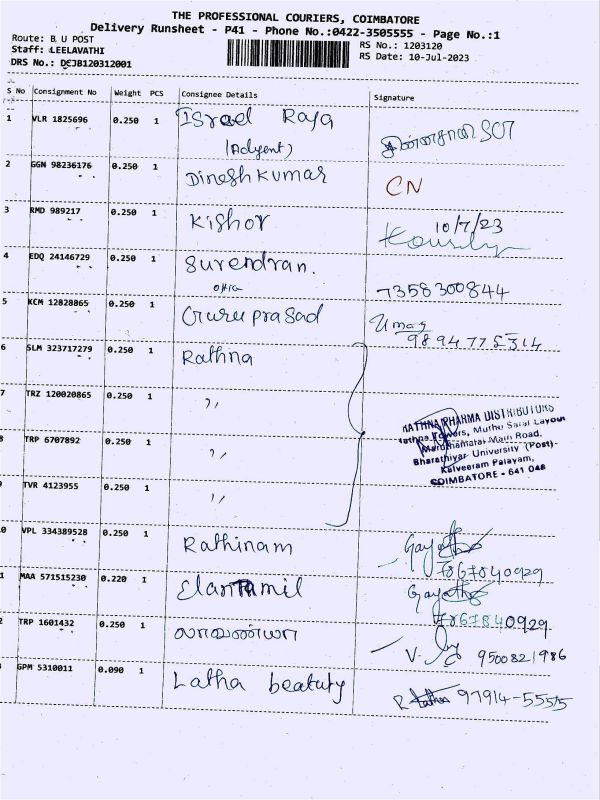 THE PROFESSIONAL COURIERS, COIMBATORE
Delivery Runsheet - P41 - Phone No.:0422-3505555 - Page No.:1
Route: B U POST
RS No.: 1203120
Staff: LEELAVATHI
RS Date: 10-Jul-2023
DRS No.: DEJB120312001
S No Consignment No Weight PCS Consignee Details Signature
1 VLR 1825696 0.250 1 Israel Raja
(Adyent)
2 GGN 98236176 0.250 1 Dineshkumar CN
3 RMD 989217 0.250 1 Kishor 10/7/23
4 EDQ 24146729 0.250 1 Surendran. 7358300844
5 KCM 12828865 0.250 1 Guru prasad Umas
9894775314
6 SLM 323717279 0.250 1 Rathna
7 TRZ 120020865 0.250 1 ,,
RATHNA PHARMA DISTRIBUTORS
Rathna Towers, Muthu Sarai Layout
Marudhamalai Main Road,
8 TRP 6707892 0.250 1 ,,
Bharathiyar University (Post)-
Kalveeram Palayam,
COIMBATORE - 641 046
9 TVR 4123955 0.250 1 ,,
0 VPL 334389528 0.250 1 Rathinam
7867840929
1 MAA 571515230 0.220 1 Elantamil
7867840929
2 TRP 1601432 0.250 1 லாவண்யா V. 9500821986
GPM 5310011 0.090 1 Latha beatuty R Latha 97914-55515